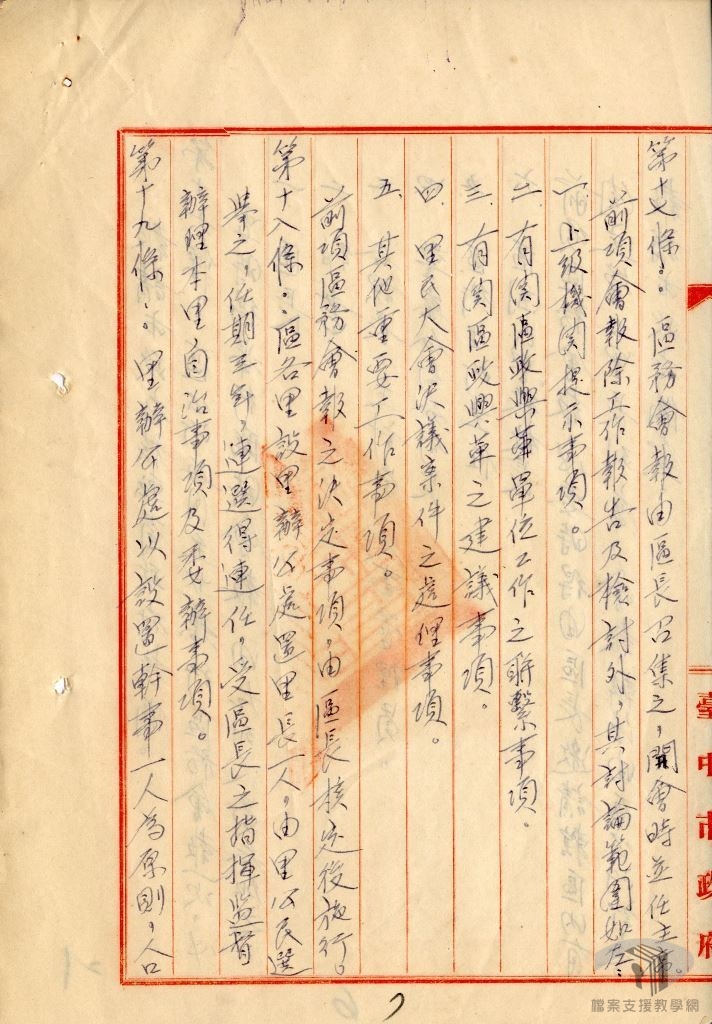 第十七條：區務會報由區長召集之，開會時並任主席。
前項會報除工作報告及檢討外，其討論範圍如左：
一、上級機関提示事項。
二、有関區政興革單位工作之聯繫事項。
三、有関區政興革之建議事項。
四、里民大會決議案件之處理事項。
五、其他重要工作事項。
前項區務會報之決定事項，由區長核定後施行。
第十八條：區各里設里辦公處置里長一人，由里公民選
舉之，任期三年，連選得連任，受區長之指揮監督
辦理本里自治事項及委辦事項。
第十九條：里辦公處以設置幹事一人為原則，人口
臺中市政府
7
檔案支援教學網